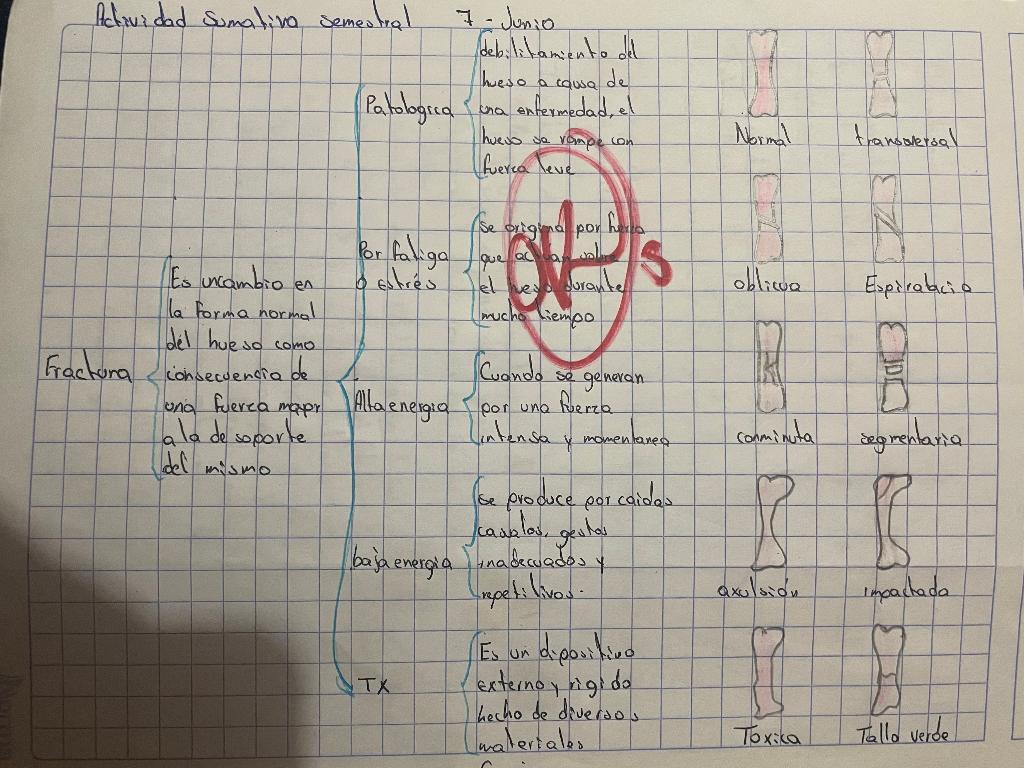 Actividad Sumativa semestral 7 - Junio
Fractura
Es uncambio en
la forma normal
del hueso como
consecuencia de
una fuerza mayor
a la de soporte
del mismo
Patologica
debilitamiento del
hueso a causa de
una enfermedad, el
hueso se rompe con
fuerza leve
Por fatiga
o estrés
Se origina por fuerza
que actuan sobre
el hueso durante
mucho tiempo
Alta energia
Cuando se generan
por una fuerza
intensa y momentanea
baja energia
se produce por caidas
gestos
inadecuados y
repetitivos.
TX
Es un dipositivo
externo y rigido
hecho de diversos
materiales
Normal
transversal
oblicua
conminuta
segmentaria
impactada
Toxica
Tallo verde